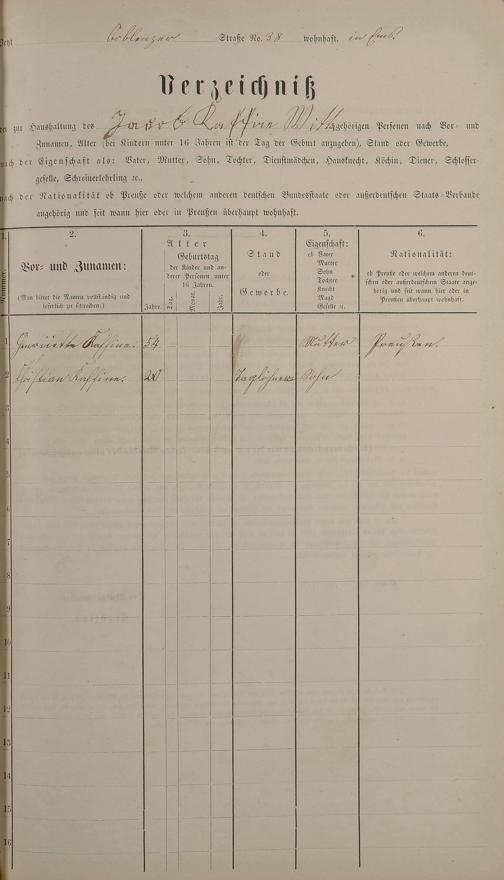 Coblenzer Straße No. 38 wohnhaft. in Ems.
Verzeichniß
der zur Haushaltung des Jacob Kaffine Witt. gehörigen Personen nach Vor- und
Zunamen, Alter (bei Kindern unter 16 Jahren ist der Tag der Geburt anzugeben), Stand oder Gewerbe,
nach der Eigenschaft als: Vater, Mutter, Sohn, Tochter, Dienstmädchen, Hausknecht, Köchin, Diener, Schlosser-
geselle, Schreinerlehrling ꝛc.,
nach der Nationalität ob Preuße oder welchem anderen deutschen Bundesstaate oder außerdeutschen Staats-Verbande
angehörig und seit wann hier oder in Preußen überhaupt wohnhaft.
1. 2. 3. 4. 5. 6.
Nummer.
Vor- und Zunamen:
(Man bittet die Namen vollständig und
leserlich zu schreiben.)
Alter
Geburtstag
der Kinder und an-
derer Personen unter
16 Jahren.
Jahre. Tag. Monat. Jahr.
Stand
oder
Gewerbe.
Eigenschaft:
ob Vater
Mutter
Sohn
Tochter
Knecht
Magd
Geselle u.
Nationalität:
ob Preuße oder welchem anderen deut-
schen oder außerdeutschen Staate ange-
hörig und seit wann hier oder in
Preußen überhaupt wohnhaft.
1 Henriette Kaffine. 54 Mutter Preußen.
2 Christian Kaffine. 20 Taglöhner Sohn
3
4
5
6
7
8
9
10
11
12
13
14
15
16